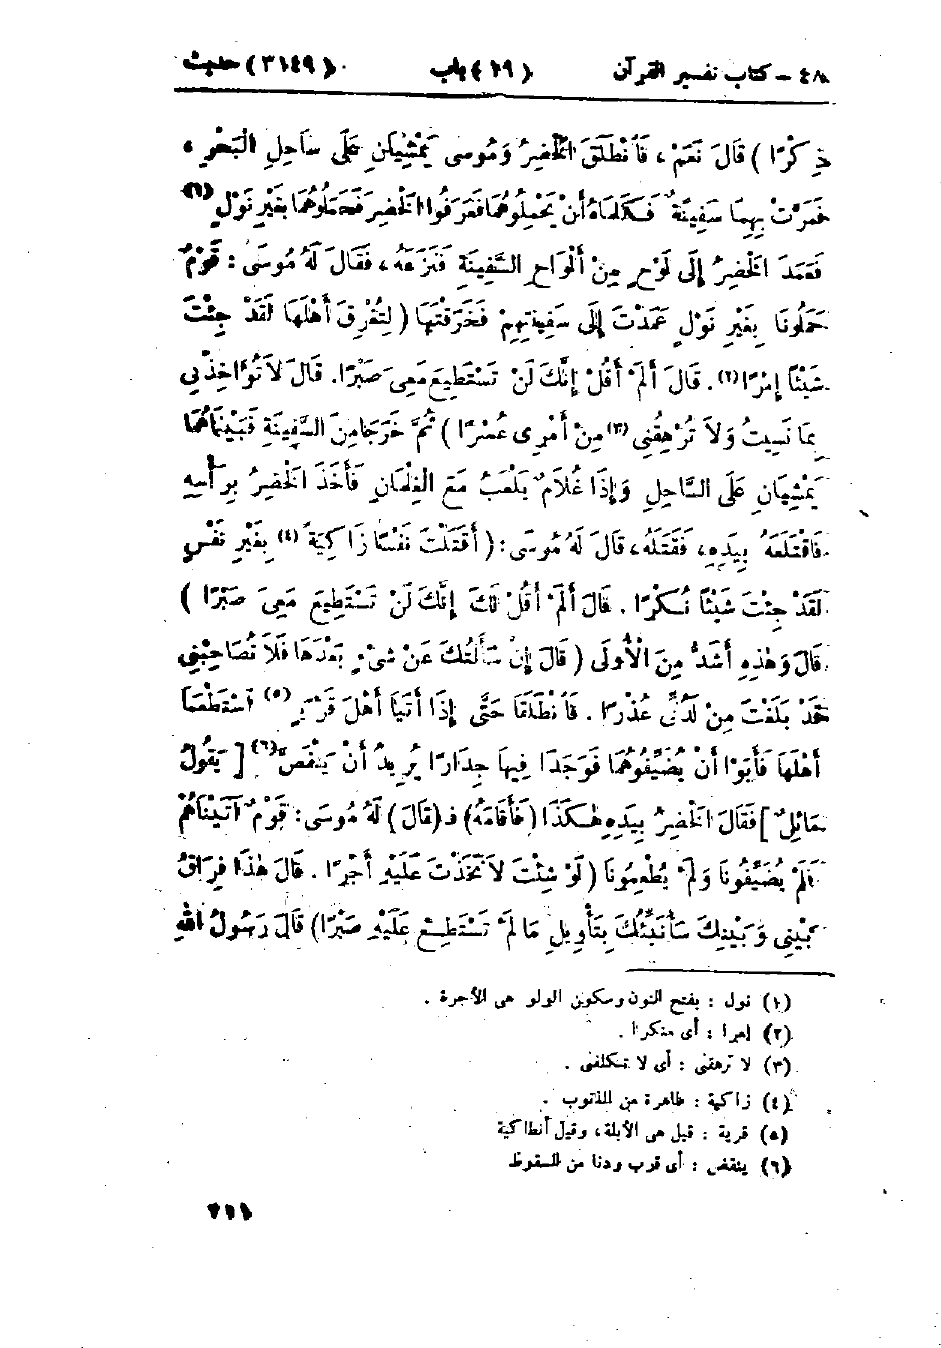 ٤٨ – كتاب تفسير القرآن (١٩) باب (٣١٤٩) حديث
ذِكْرًا ) قَالَ نَعَمْ ، فَانْطَلَقَ الْخَضِرُ وَمُوسى يَمْشِيَانِ عَلَى سَاحِلِ الْبَحْرِ ،
فَمَرَّتْ بِهِمَا سَفِينَةٌ فَكَلَّمَاهُ أَنْ يَحْمِلُوهُمَا فَعَرَفُوا الْخَضِرَ فَحَمَلُوهُمَا بِغَيْرِ نَوْلٍ (١)
فَعَمَدَ الْخَضِرُ إِلَى لَوْحٍ مِنْ أَلْوَاحِ السَّفِينَةِ فَنَزَعَهُ ، فَقَالَ لَهُ مُوسَى : قَوْمٌ
حَمَلُونَا بِغَيْرِ نَوْلٍ عَمَدْتَ إِلَى سَفِينَتِهِمْ فَخَرَقْتَهَا ( لِتُغْرِقَ أَهْلَهَا لَقَدْ جِئْتَ
شَيْئًا إِمْرًا (٢) . قَالَ أَلَمْ أَقُلْ إِنَّكَ لَنْ تَسْتَطِيعَ مَعِيَ صَبْرًا. قَالَ لاَ تُؤَاخِذْنِي
بِمَا نَسِيتُ وَلاَ تُرْهِقْنِي (٣) مِنْ أَمْرِى عُسْرًا ) ثُمَّ خَرَجَا مِنَ السَّفِينَةِ فَبَيْنَاهُمَا
يَمْشِيَانِ عَلَى السَّاحِلِ وَإِذَا غُلاَمٌ يَلْعَبُ مَعَ الْغِلْمَانِ فَأَخَذَ الْخَضِرُ بِرَأْسِهِ
فَاقْتَلَعَهُ بِيَدِهِ ، فَقَتَلَهُ ، قَالَ لَهُ مُوسَى : ( أَقَتَلْتَ نَفْسًا زَاكِيَةً (٤) بِغَيْرِ نَفْسٍ
لَقَدْ جِئْتَ شَيْئًا نُكْرًا . قَالَ أَلَمْ أَقُلْ لَكَ إِنَّكَ لَنْ تَسْتَطِيعَ مَعِيَ صَبْرًا )
قَالَ وَهٰذِهِ أَشَدُّ مِنَ الْأُولَى ( قَالَ إِنْ سَأَلْتُكَ عَنْ شَىْءٍ بَعْدَهَا فَلاَ تُصَاحِبْنِي
قَدْ بَلَغْتَ مِنْ لَدُنِّي عُذْرًا . فَانْطَلَقَا حَتَّى إِذَا أَتَيَا أَهْلَ قَرْيَةٍ (٥) اسْتَطْعَمَا
أَهْلَهَا فَأَبَوْا أَنْ يُضَيِّفُوهُمَا فَوَجَدَا فِيهَا جِدَارًا يُرِيدُ أَنْ يَنْقَضَّ (٦) [ يَقُولُ
مَائِلٌ ] فَقَالَ الْخَضِرُ بِيَدِهِ هٰكَذَا ( فَأَقَامَهُ ) فَـ (قَالَ ) لَهُ مُوسَى : قَوْمٌ أَتَيْنَاهُمْ
فَلَمْ يُضَيِّفُونَا وَلَمْ يُطْعِمُونَا ( لَوْ شِئْتَ لاَتَّخَذْتَ عَلَيْهِ أَجْرًا . قَالَ هٰذَا فِرَاقُ
بَيْنِي وَبَيْنِكَ سَأُنَبِّئُكَ بِتَأْوِيلِ مَا لَمْ تَسْتَطِعْ عَلَيْهِ صَبْرًا ) قَالَ رَسُولُ اللهِ
(١) نول : بفتح النون وسكون الولو هى الأجرة .
(٢) إمرا : أى منكرا .
(٣) لا ترهقنى : أى لا تكلفنى .
(٤) زاكية : طاهرة من الذنوب .
(٥) قرية : قيل هى الأبلة ، وقيل أنطاكية
(٦) ينقض : أى قرب ودنا من السقوط
٣١١